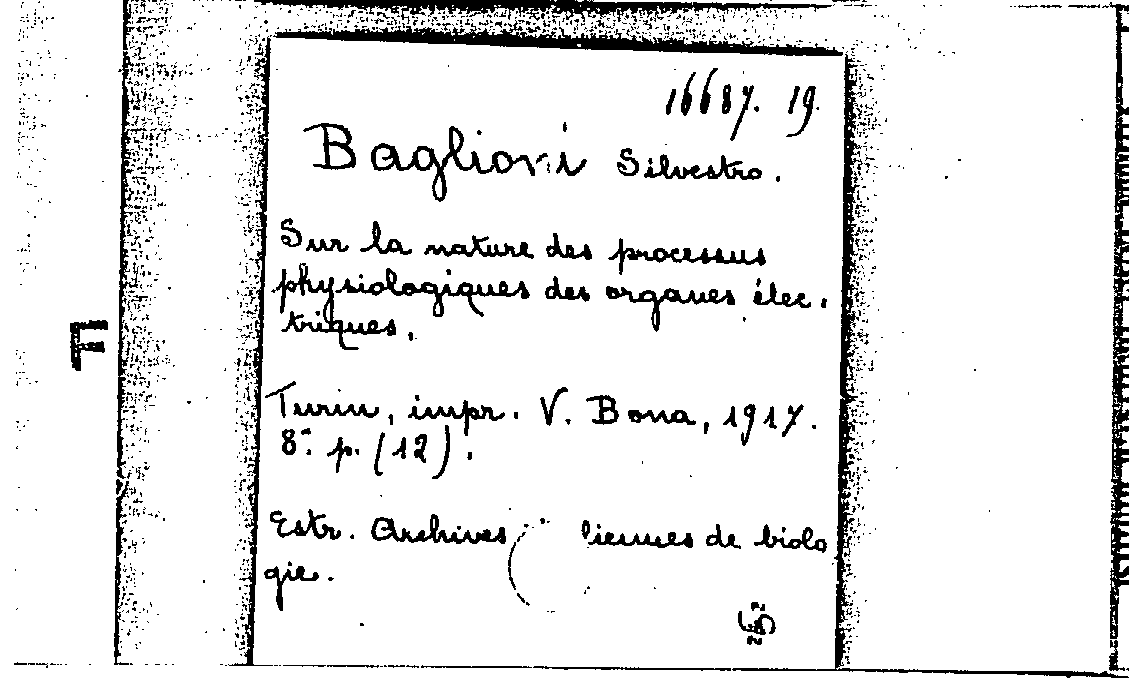 16687. 19.
Baglioni Silvestro.
Sur la nature des processus
physiologiques des organes élec.
triques.
Turin, impr. V. Bona, 1917.
8°. p. (12).
Estr. Archives liennes de biolo
gie.